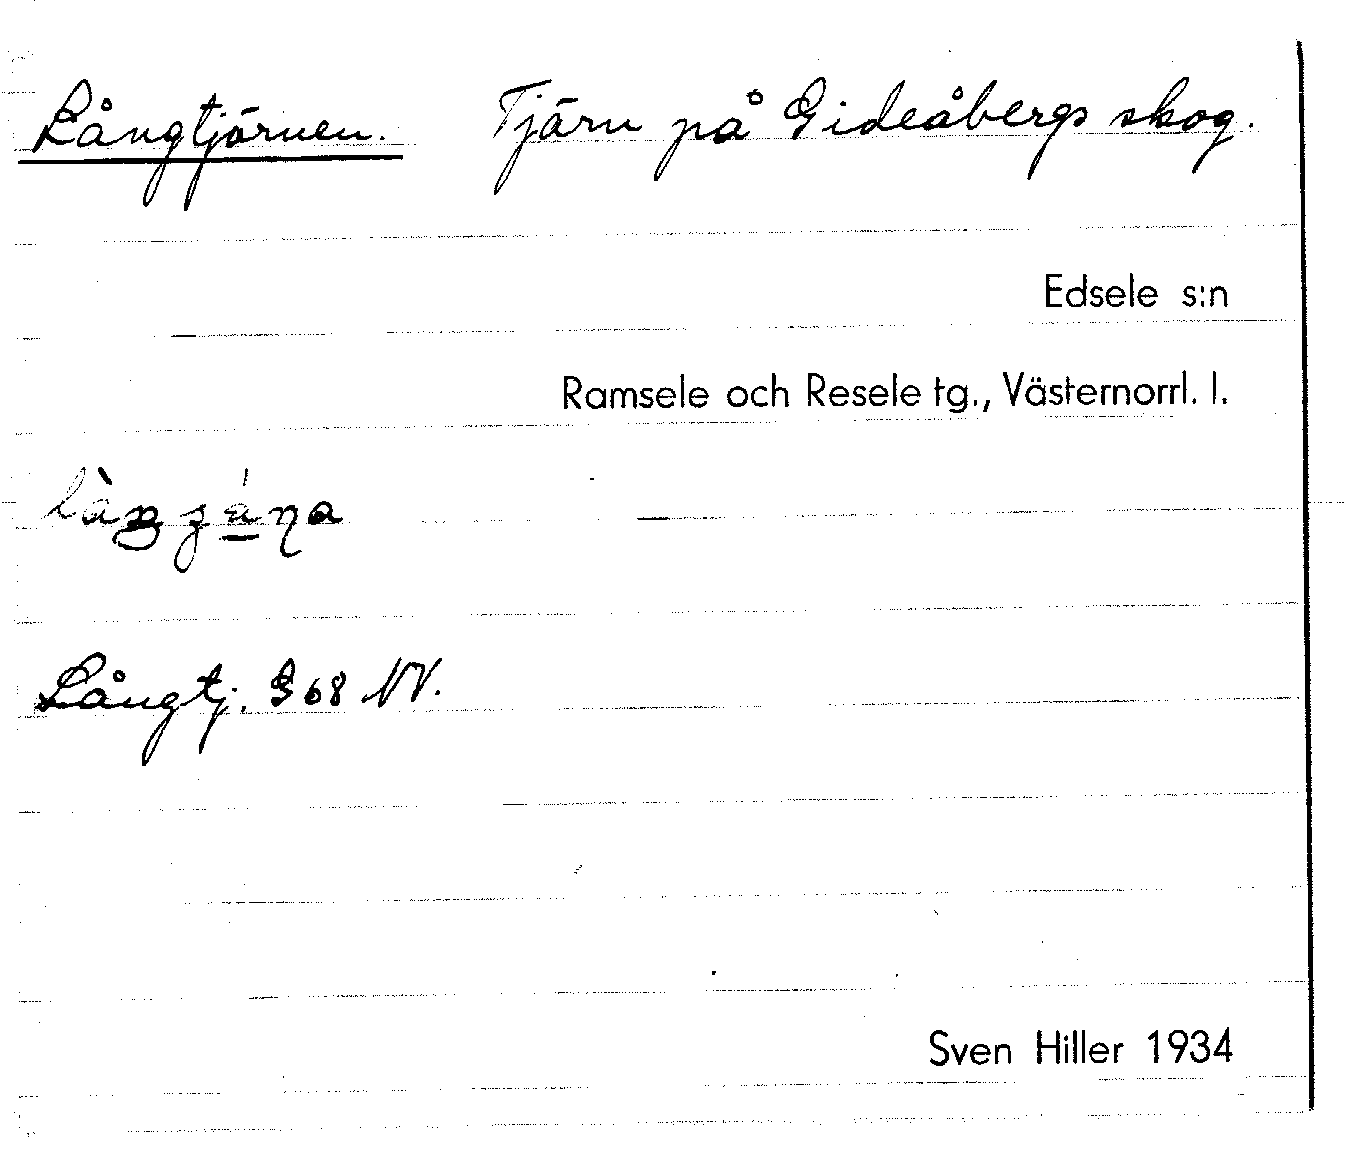 Långtjärnen. Tjärn på Gideåbergs skog.
Edsele s:n
Ramsele och Resele tg., Västernorrl. l.
Långtj. G 68 NV.
Sven Hiller 1934